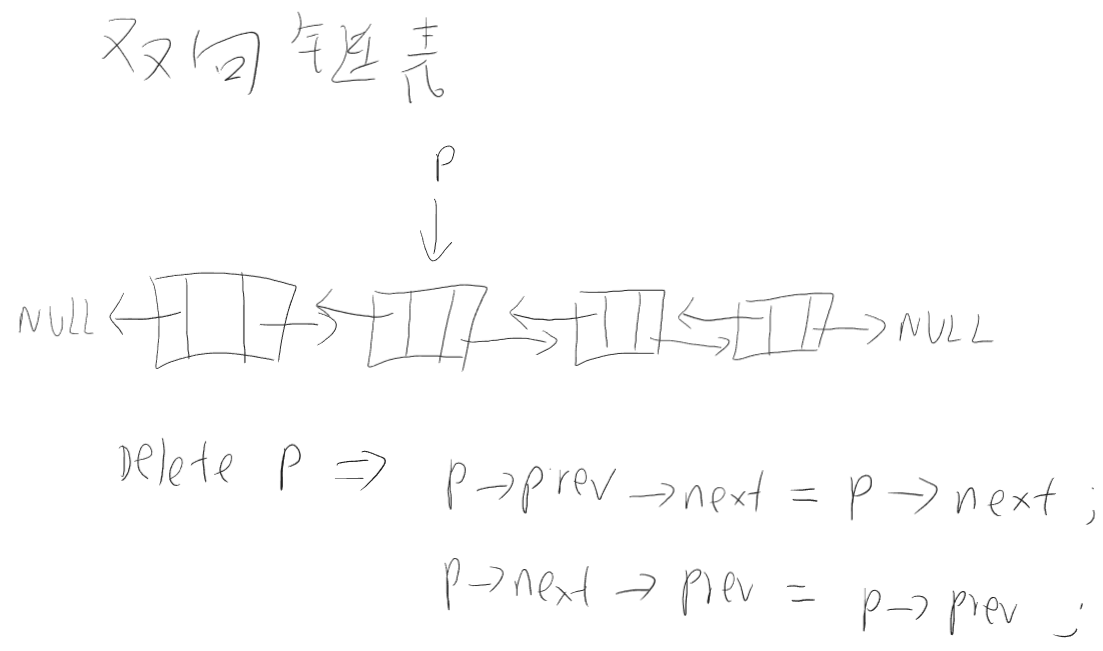 双向链表
P
NULL NULL
Delete P ⇒ p→prev→next = p→next ;
p→next→prev = p→prev ;